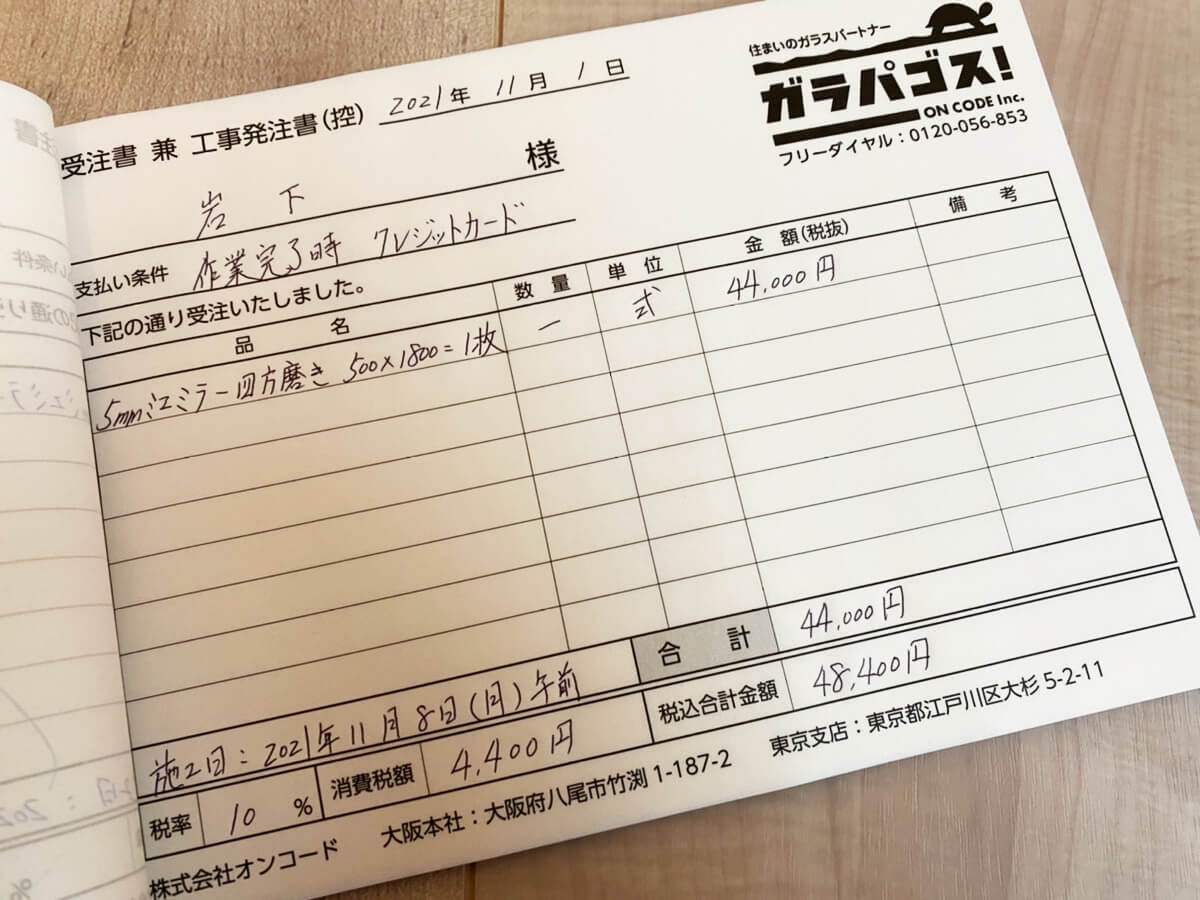 住まいのガラスパートナー
ガラパゴス!
ON CODE Inc.
フリーダイヤル:0120-056-853
受注書 兼 工事発注書(控) 2021年 11月 1日
岩下 様
支払い条件 作業完了時 クレジットカード
下記の通り受注いたしました。
品 名 数 量 単 位 金 額(税抜) 備 考
5mmミエミラー四方磨き 500×1800=1枚 一 式 44,000円
合 計 44,000円
施工日:2021年11月8日(月)午前
税率 10 % 消費税額 4,400円 税込合計金額 48,400円
株式会社オンコード 大阪本社:大阪府八尾市竹渕 1-187-2 東京支店:東京都江戸川区大杉 5-2-11